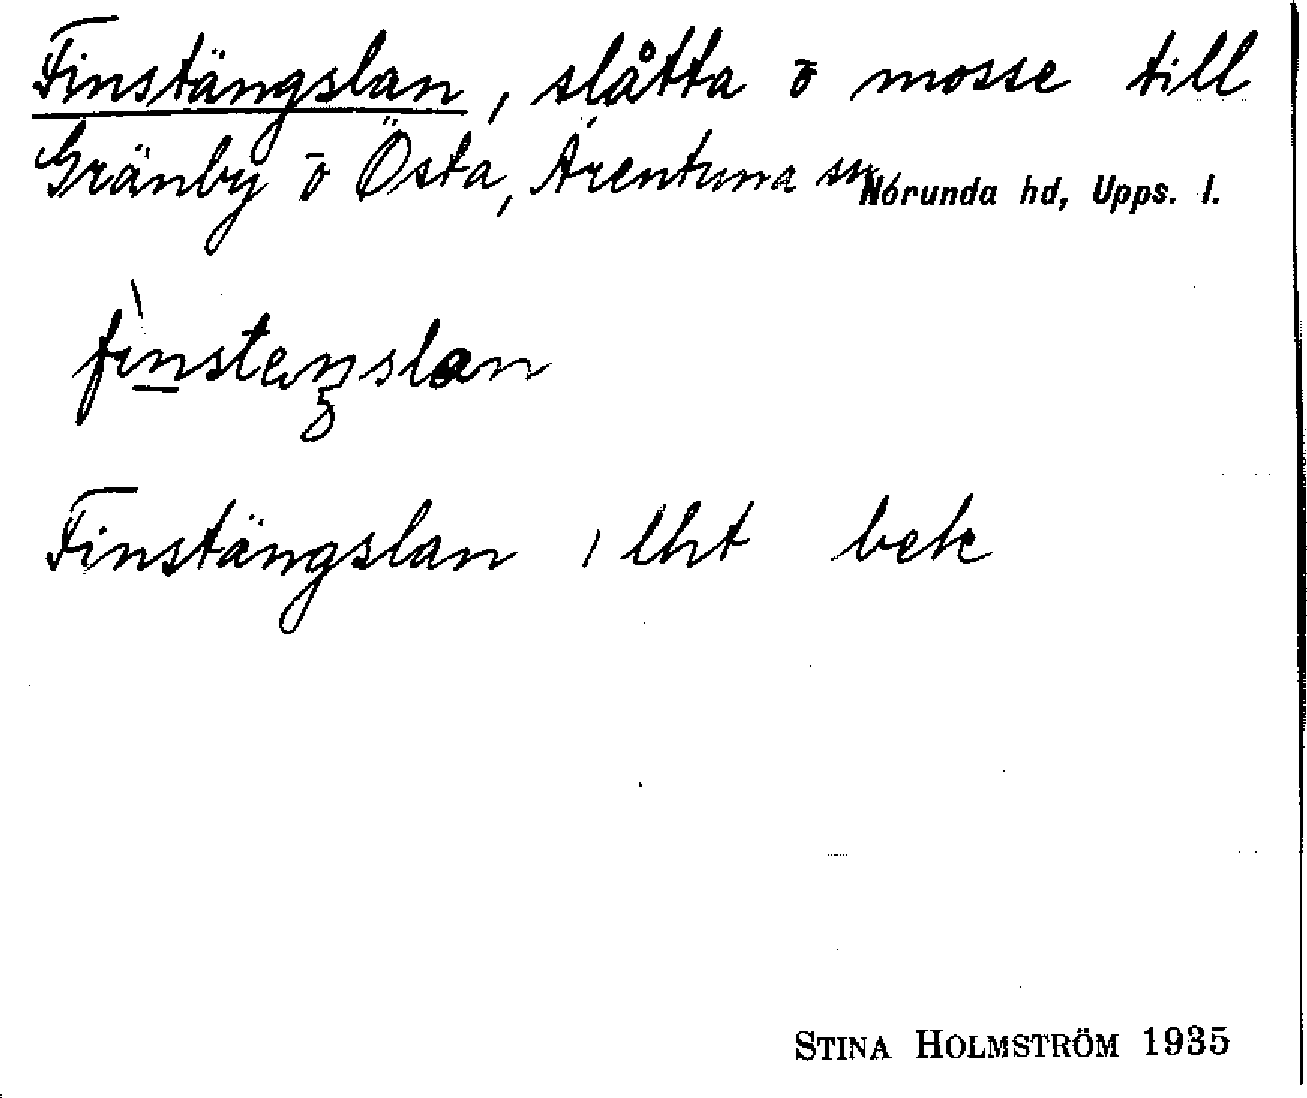 Finstängslan, slåtta o mosse till
Gränby o Östa, Ärentuna sn Norunda hd, Upps. l.
Finstängslan, lht bek
STINA HOLMSTRÖM 1935